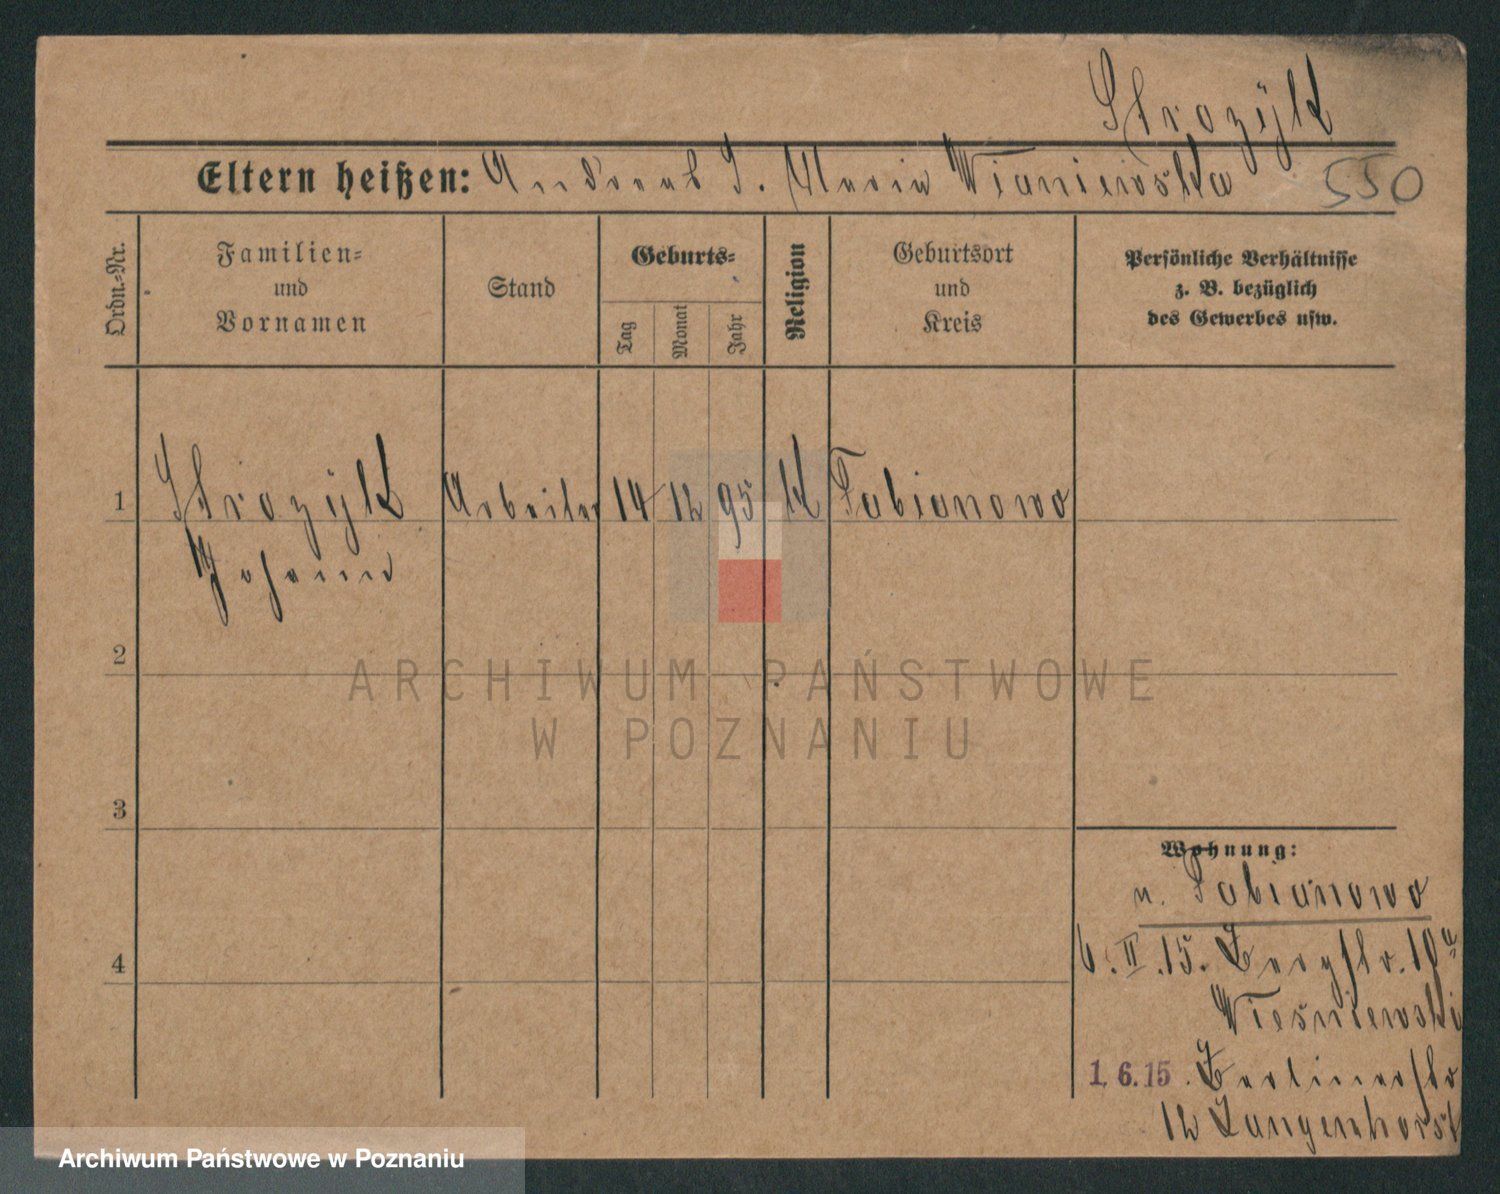 Strozÿk
Eltern heißen: Andreas u. Maria Wisniewska 550
Ordn.-Nr.
Familien-
und
Vornamen
Stand
Geburts-
Tag
Monat
Jahr
Religion
Geburtsort
und
Kreis
Persönliche Verhältnisse
z. B. bezüglich
des Gewerbes usw.
1 Strozÿk Arbeiter 14 12 95 K Fabianowo
Johann
2
3
4
ARCHIWUM PAŃSTWOWE
W POZNANIU
Wohnung:
n. Fabianowo
6. II. 15. Bergstr.
Wieśniewski
1. 6. 15. Berlinerstr
12 Langenhorst
Archiwum Państwowe w Poznaniu